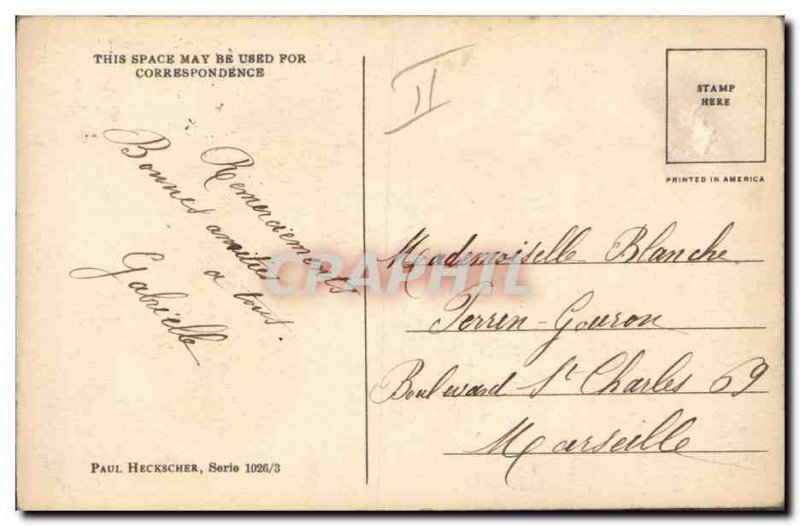 THIS SPACE MAY BE USED FOR
CORRESPONDENCE
II
STAMP
HERE
PRINTED IN AMERICA
Remerciements
Bonnes amitiés
à tous.
Gabrielle
CRAPHIL
Mademoiselle Blanche
Perrin-Gouron
Boulevard St Charles 69
Marseille
PAUL HECKSCHER, Serie 1026/3